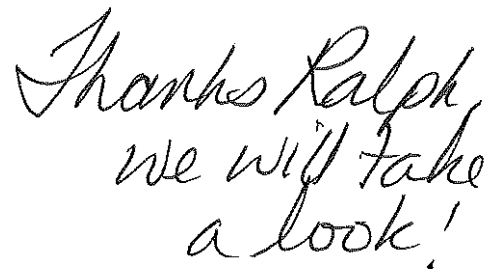 Thanks Ralph,
we will take
a look!